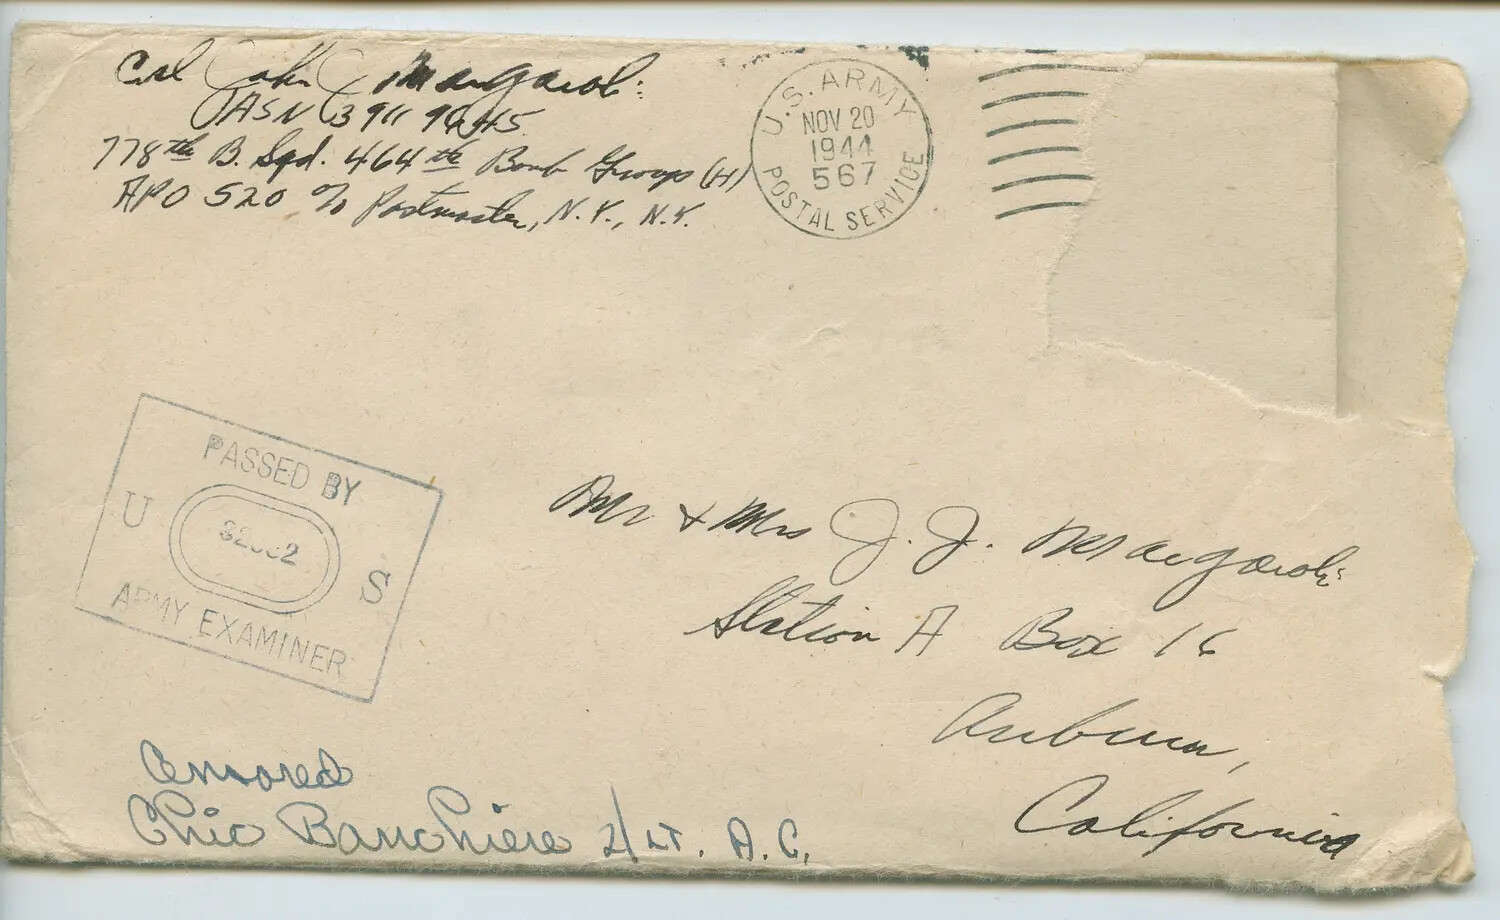 Cpl John J Margaroli
ASN 39119645
778th B. Sqd. 464th Bomb Group (H)
APO 520 % Postmaster, N.Y., N.Y.
U.S. ARMY
NOV 20
1944
567
POSTAL SERVICE
PASSED BY
U S
ARMY EXAMINER
Mr & Mrs J. J. Margaroli
Station A Box 16
Auburn,
California
Censored
Chic Banchiere 2/LT. A.C.